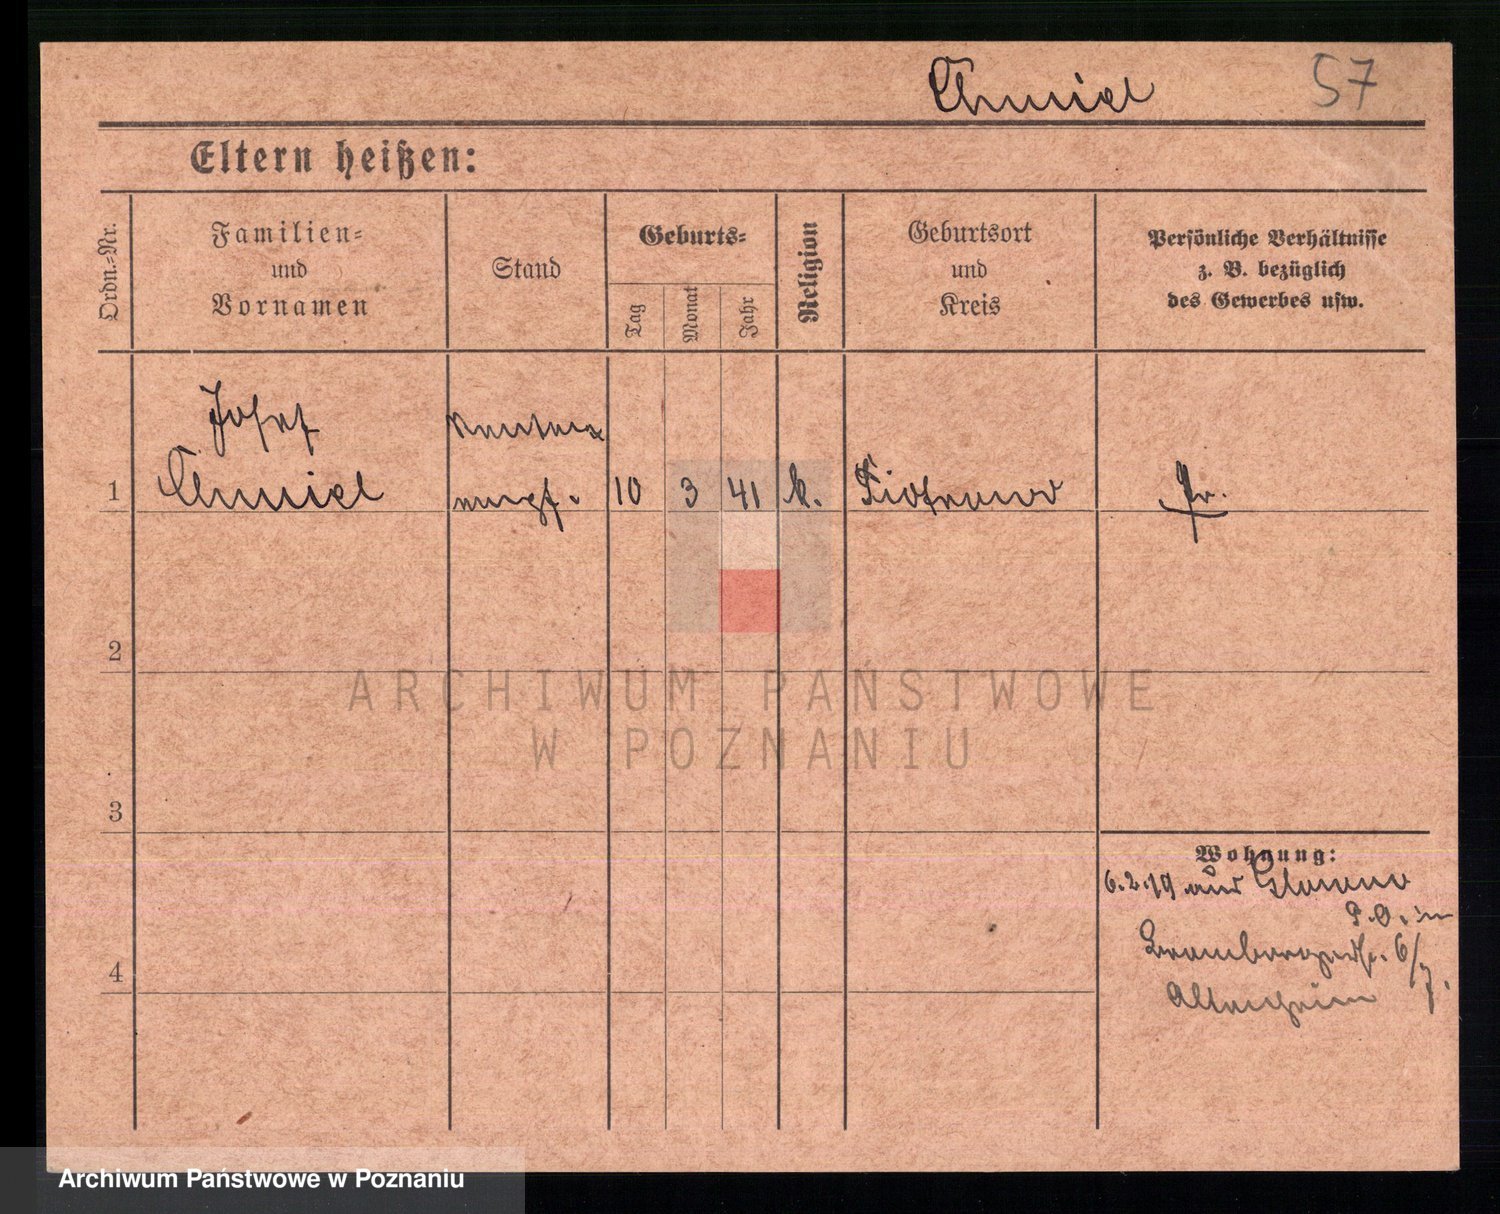 Chmiel 57
Eltern heißen:
Ordn.-Nr.
Familien-
und
Vornamen
Stand
Geburts-
Tag
Monat
Jahr
Religion
Geburtsort
und
Kreis
Persönliche Verhältnisse
z. B. bezüglich
des Gewerbes usw.
Josef
1 Chmiel 10 3 41 k. Piotrowo Pr.
2
3
4
Wohnung:
6.2.19 aus Glowno
P.O. in
Brombergerstr. 6/7.
Altersheim
ARCHIWUM PAŃSTWOWE
W POZNANIU
Archiwum Państwowe w Poznaniu